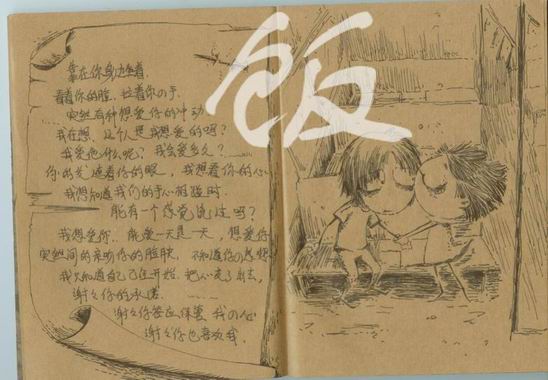 饭
靠在你身边坐着.
看着你的脸. 拉着你の手.
突然有种想爱你的冲动.
我在想. 这个人是我想爱的吗?
我爱他什么呢? 我会爱多久? ......
你的发遮着你的眼. 我想看你的心.
我想知道我们的手心相碰时.
能有一个感觉说过吗?
我想爱你.. 能爱一天是一天. 想爱你
突然间的亲吻你的脸颊. 不知道你の感想
我只知道自己已经开始. 把心完了出去.
谢谢你的承诺. ......
谢谢你答应保护我の心
谢谢你也喜欢我.